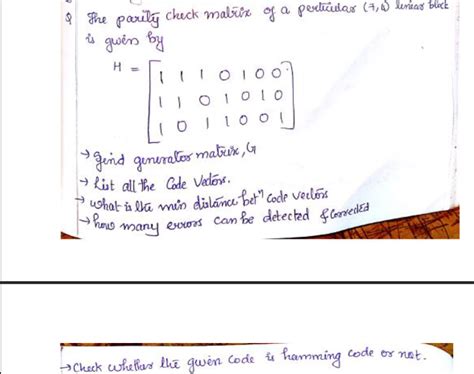 Q The parity check matrix of a particular (7,4) linear block
is given by
H = [1 1 1 0 1 0 0
1 1 0 1 0 1 0
1 0 1 1 0 0 1]
→ find generator matrix, G
→ List all the Code Vectors.
→ what is the min distance betⁿ code vectors
→ how many errors can be detected & Corrected
→ Check whether the given code is hamming code or not.